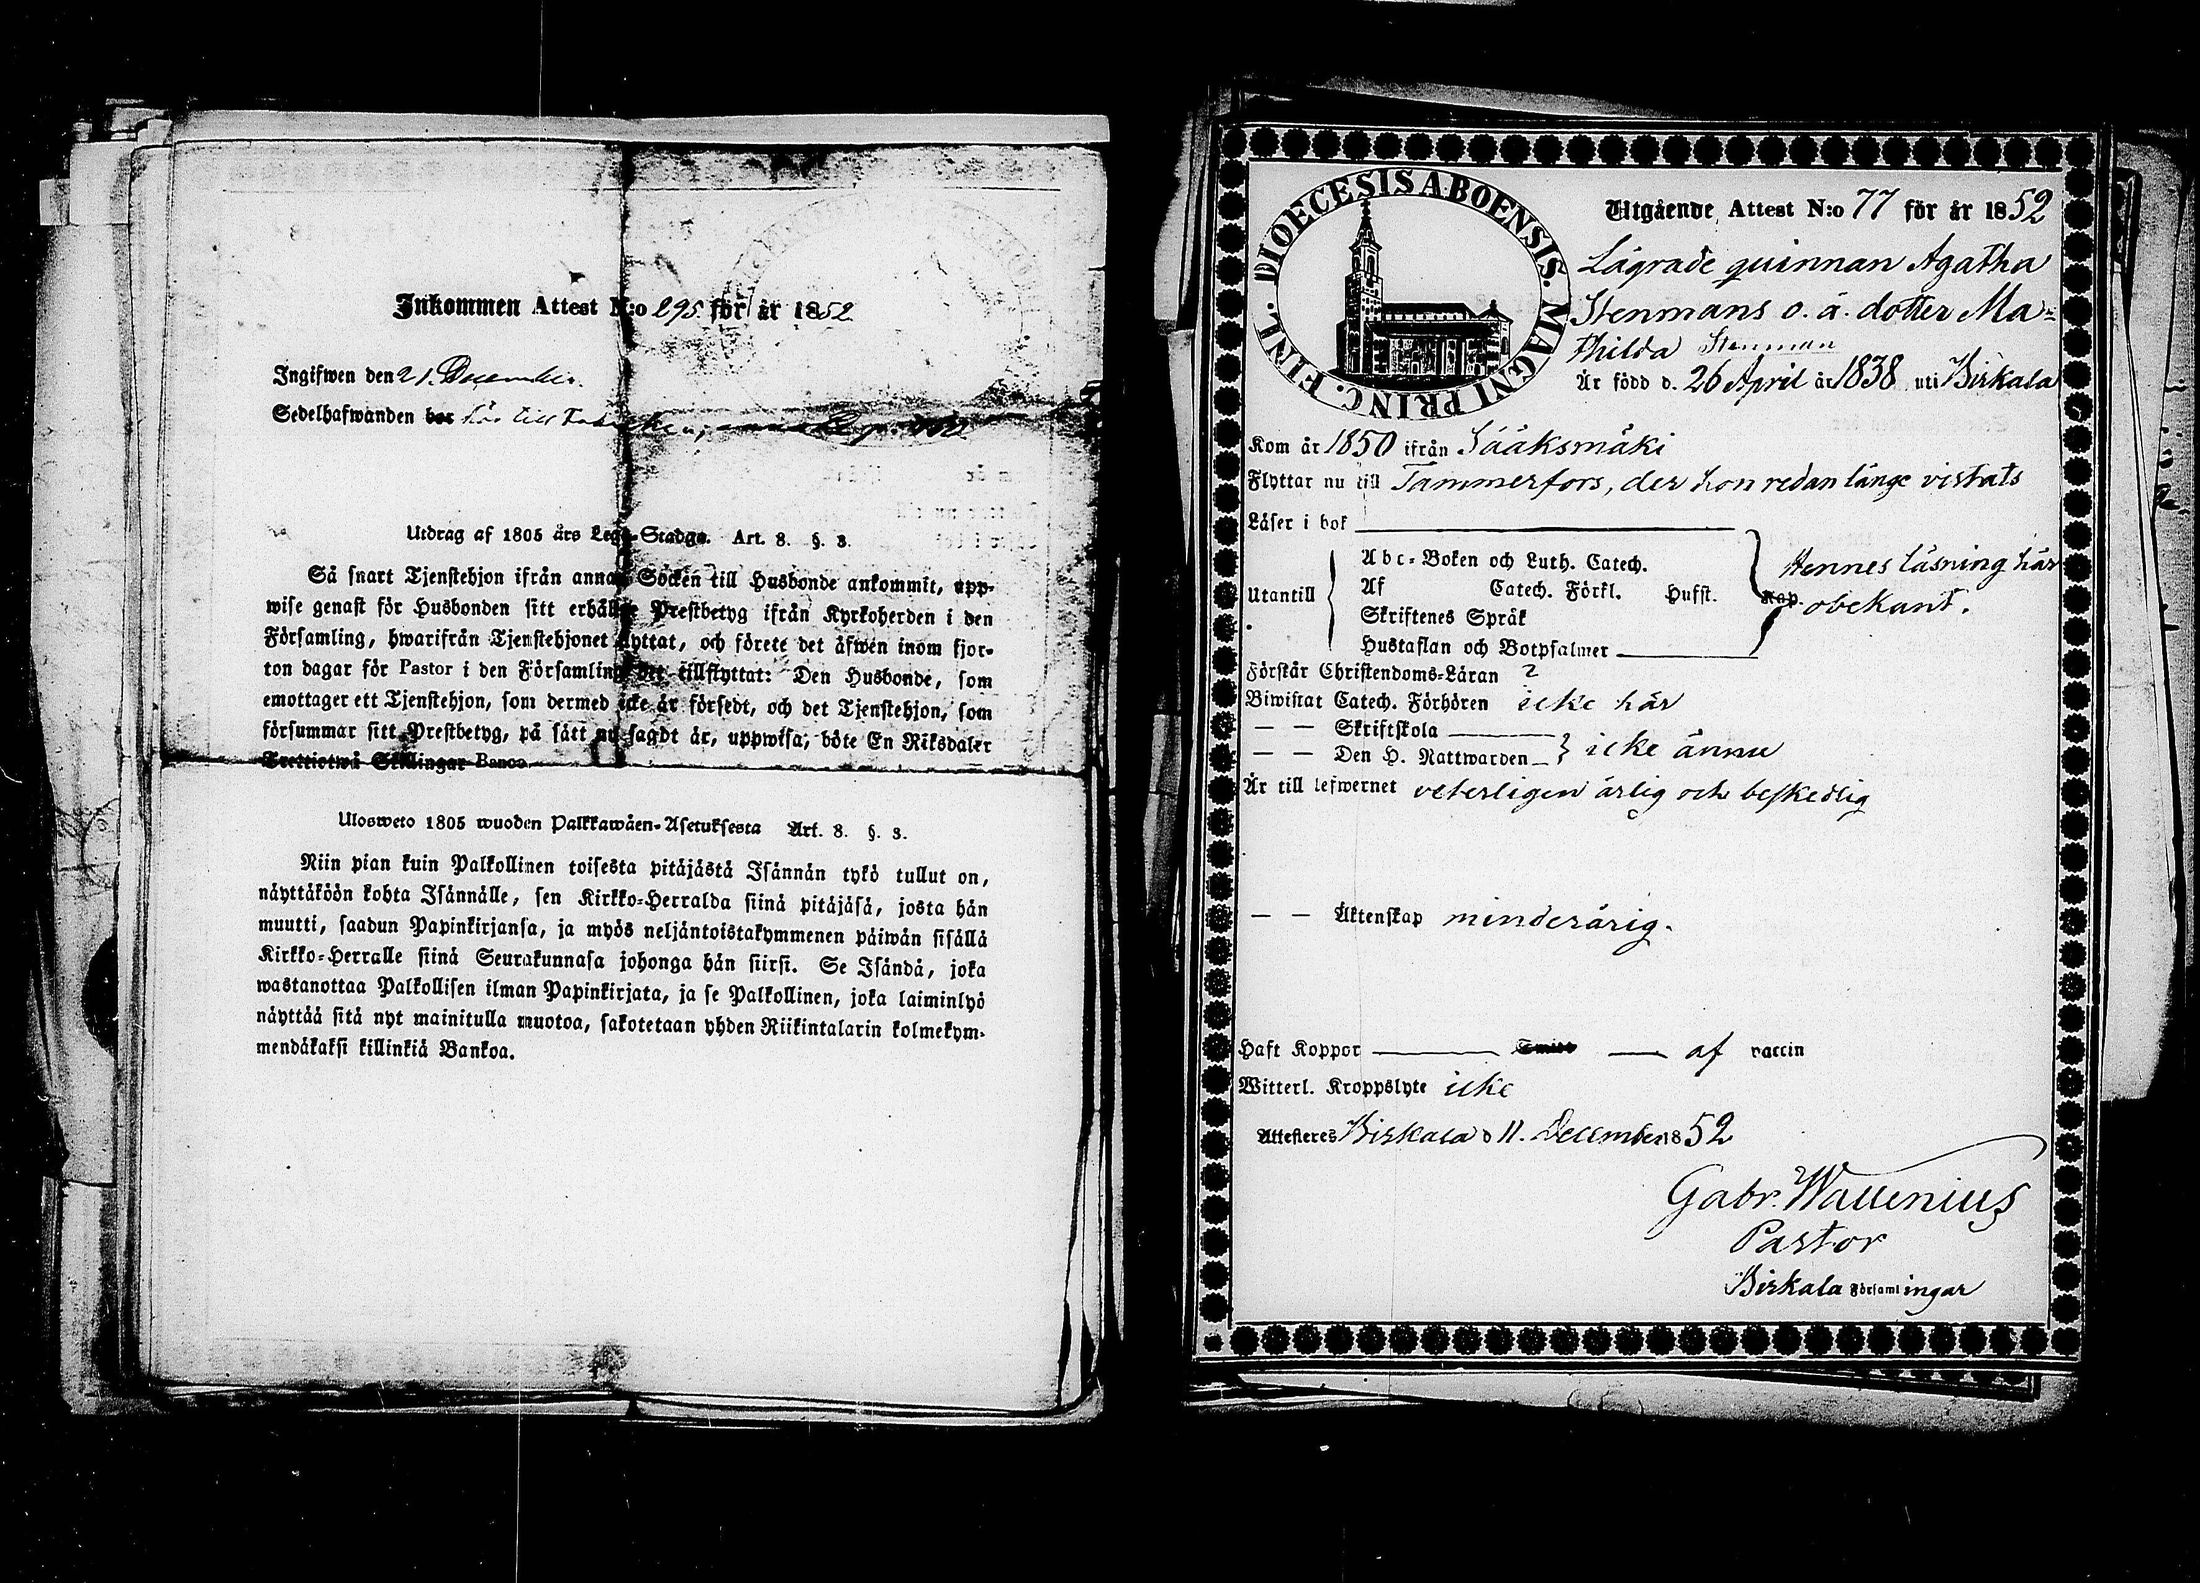 Inkommen Attest N:o 295 för år 1852
Ingifwen den 21. December.
Sedelhafwanden bor här till
Utdrag af 1805 års Lego-Stadga. Art. 8. §. 3.
Så snart Tjenstehjon ifrån annan Socken till Husbonde ankommit, upp-
wise genast för Husbonden sitt erhållne Prestbetyg ifrån Kyrkoherden i den
Församling, hwarifrån Tjenstehjonet flyttat, och förete det äfwen inom fjor-
ton dagar för Pastor i den Församling det tillflyttat: Den Husbonde, som
emottager ett Tjenstehjon, som dermed icke är försedt, och det Tjenstehjon, som
försummar sitt Prestbetyg, på sätt nu sagdt är, uppwisa, böte En Riksdaler
Trettiotwå Skillingar Banco.
Ulosweto 1805 wuoden Palkkawäen-Asetuksesta Art. 8. §. 3.
Niin pian kuin Palkollinen toisesta pitäjästä Isännän tykö tullut on,
näyttäköön kohta Isännälle, sen Kirkko-Herralda siinä pitäjäsä, josta hän
muutti, saadun Papinkirjansa, ja myös neljäntoistakymmenen päiwän sisällä
Kirkko-Herralle siinä Seurakunnasa johonga hän siirsi. Se Isändä, joka
wastanottaa Palkollisen ilman Papinkirjata, ja se Palkollinen, joka laiminlyö
näyttää sitä nyt mainitulla muotoa, sakotetaan yhden Riikintalarin kolmekym-
mendäkaksi killinkiä Bankoa.
DIOECESIS ABOENSIS. MAGNI PRINC. FINL.
Utgående Attest N:o 77 för år 1852
Lägrade quinnan Agatha
Stenmans o. ä. dotter Ma=
thilda Stenman
Är född d. 26 April år 1838 uti Birkala
Kom år 1850 ifrån Sääksmäki
Flyttar nu till Tammerfors, der hon redan länge vistats
Läser i bok
Abc-Boken och Luth. Catech.
Hennes läsning här
Utantill Af Catech. Förkl. Husst. Kap.
obekant.
Skriftenes Språk
Hustaflan och Botpsalmer
Förstår Christendoms-Läran ?
Biwistat Catech. Förhören icke här
— — Skriftskola
— — Den H. Nattwarden icke ännu
Är till lefwernet veterligen ärlig och beskedlig
— — Äktenskap minderårig.
Haft Koppor af vaccin
Witterl. Kroppslyte icke
Attesteres Birkala d 11. December 1852
Gabr. Wallenius
Pastor
Birkala Församlingar